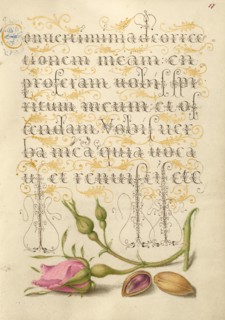 onuertimini ad correc
tionem meam: en
proferam uobis spi
ritum meum: et os
tendam. Vobis uer
ba mea, quia uoca
ui et renuistis etc